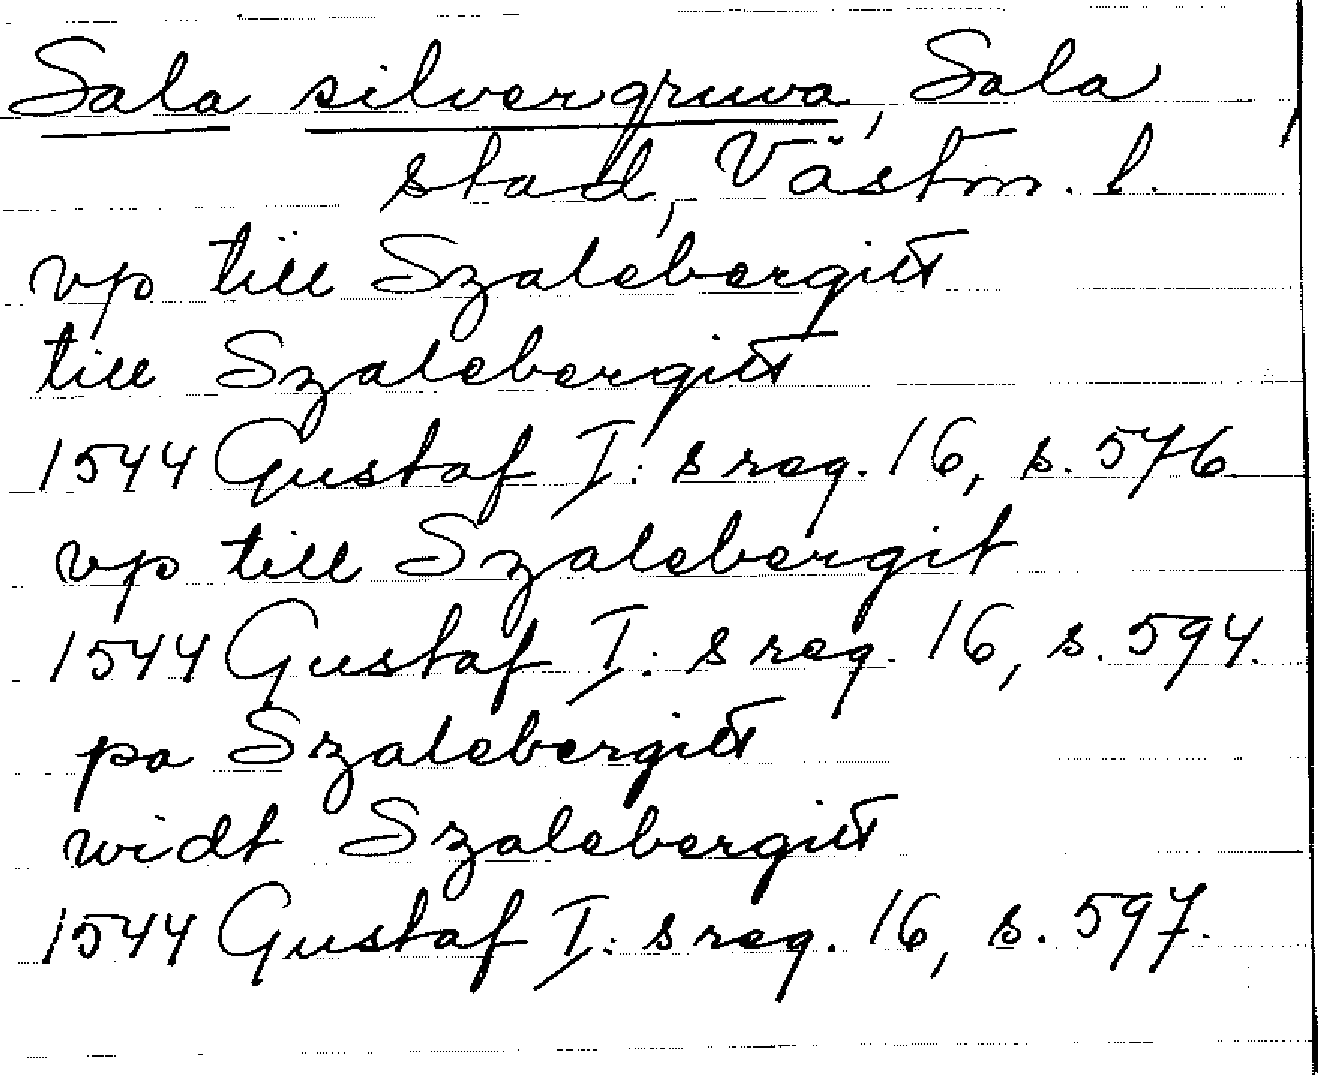 Sala silvergruva, Sala
stad, Västm. l.
vp till Szalebergitt
till Szalebergitt
1544 Gustaf I:s reg. 16, s. 576
vp till Szalebergit
1544 Gustaf I:s reg. 16, s. 594.
pa Szalebergitt
widt Szalebergitt
1544 Gustaf I:s reg. 16, s. 597.